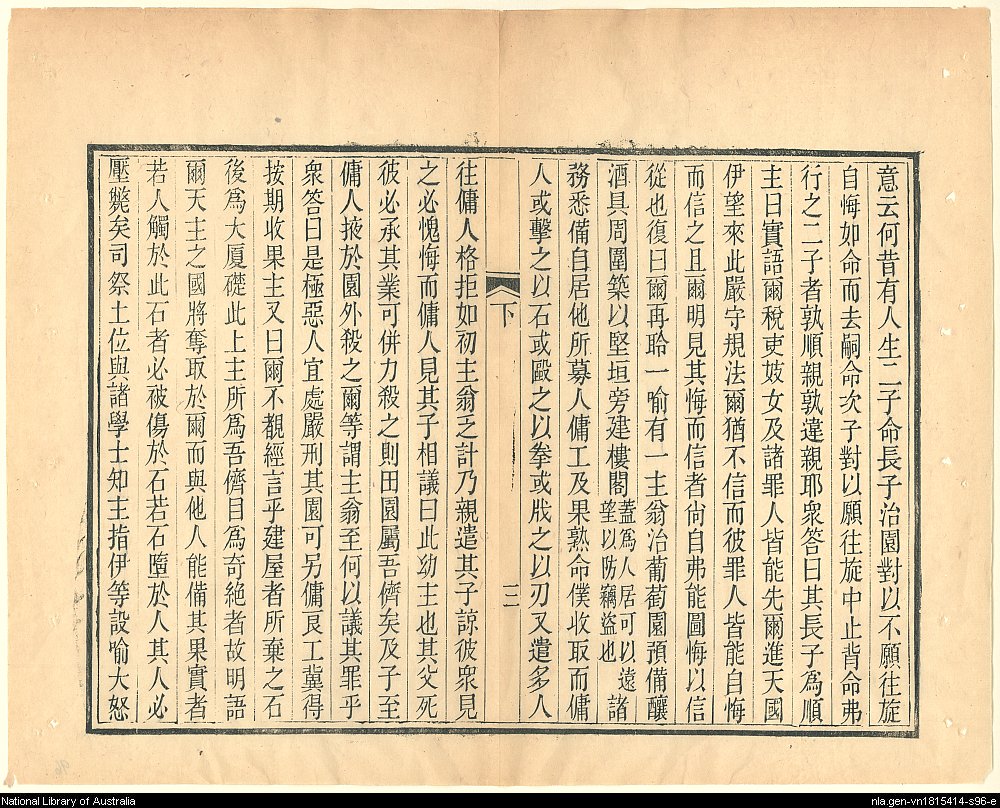 意云何昔有人生二子命長子治園對以不願往旋
自悔如命而去嗣命次子對以願往旋中止背命弗
行之二子者孰順親孰違親耶衆答曰其長子為順
主曰實語爾稅吏妓女及諸罪人皆能先爾進天國
伊望來此嚴守規法爾猶不信而彼罪人皆能自悔
而信之且爾明見其悔而信者尙自弗能圖悔以信
從也復曰爾再聆一喻有一主翁治葡萄園預備釀
酒具周圍築以堅垣旁建樓閣蓋為人居可以遠望以防竊盜也諸
務悉備自居他所募人傭工及果熟命僕收取而傭
人或擊之以石或毆之以拳或戕之以刃又遣多人
下
二
往傭人格拒如初主翁之計乃親遣其子諒彼衆見
之必愧悔而傭人見其子相議曰此幼主也其父死
彼必承其業可併力殺之則田園屬吾儕矣及子至
傭人掖於園外殺之爾等謂主翁至何以議其罪乎
衆答曰是極惡人宜處嚴刑其園可另傭良工冀得
按期收果主又曰爾不覩經言乎建屋者所棄之石
後為大厦礎此上主所為吾儕目為奇絕者故明語
爾天主之國將奪取於爾而與他人能備其果實者
若人觸於此石者必被傷於石若石墮於人其人必
壓斃矣司祭士位與諸學士知主指伊等設喻大怒
National Library of Australia
nla.gen-vn1815414-s96-e